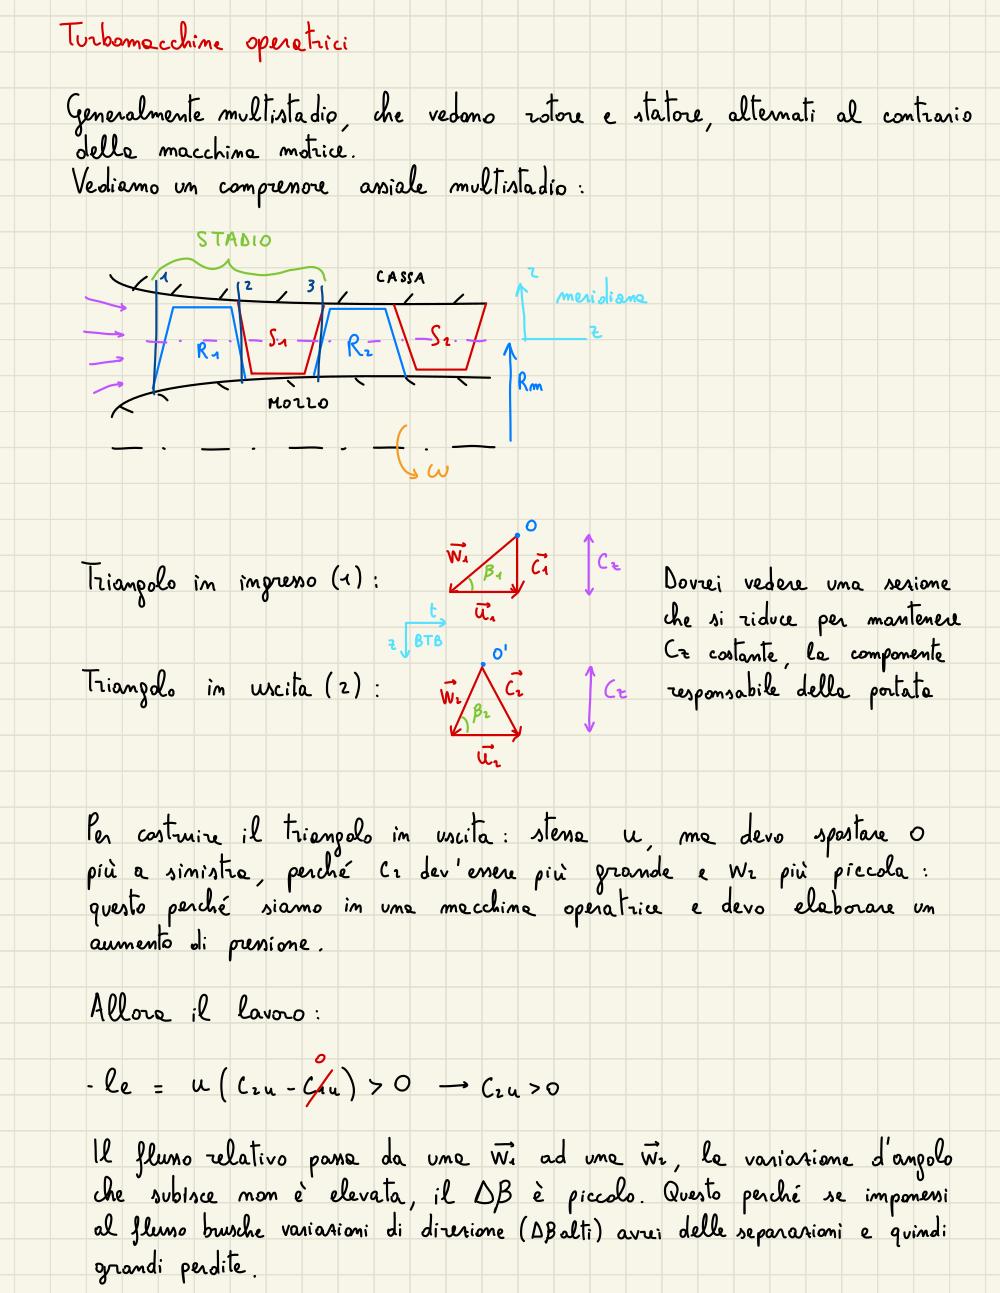 Turbomacchine operatrici
Generalmente multistadio, che vedono rotore e statore, alternati al contrario
della macchina motrice.
Vediamo un compressore assiale multistadio :
STADIO
1 2 3 CASSA
r
meridiana
z
R1 S1 R2 S2
Rm
MOZZO
ω
O
Triangolo in ingresso (1) : w⃗1 β1 c⃗1 Cz
u⃗1
t
z BTB
O'
Triangolo in uscita (2) : w⃗2 β2 c⃗2 Cz
u⃗2
Dovrei vedere una sezione
che si riduce per mantenere
Cz costante, la componente
responsabile della portata
Per costruire il triangolo in uscita : stessa u, ma devo spostare O
più a sinistra, perché C2 dev'essere più grande e W2 più piccola :
questo perché siamo in una macchina operatrice e devo elaborare un
aumento di pressione.
Allora il lavoro :
0
- le = u ( C2u - C1u ) > 0 → C2u > 0
Il flusso relativo passa da una w⃗1 ad una w⃗2, la variazione d'angolo
che subisce non è elevata, il Δβ è piccolo. Questo perché se imponessi
al flusso brusche variazioni di direzione (Δβ alti) avrei delle separazioni e quindi
grandi perdite.